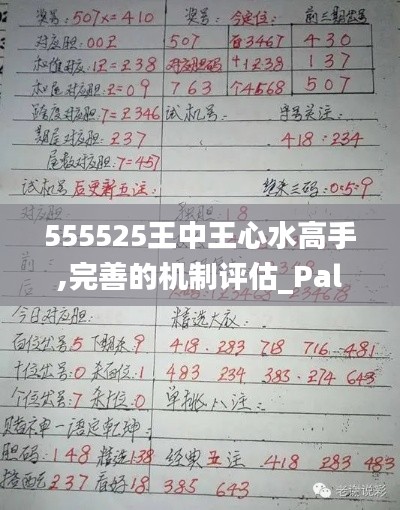 奖号:507x=410 奖号: 今定位: 前三期奖号
对应胆:00 507 百3467 430
=238 对应胆码 +1238 137
对应胆:=09 763 个4568 507
跨度对应胆:7=2346 试机号: 字号关注:
期尾对应胆:237 418:234
尾数对应胆:7=457
试机号后更新五注: 0:5:9
对应胆
555525王中王心水高手
,完善的机制评估_Pal
今日对应胆: 精选大底:
百位出号5下期杀9 418.283 718 716-481
十位出号:0杀百位:1 483 234 383-274 643
个位出号:7杀十位:0 单挑八注:
赌神单一语定乾坤:
胆码:148 精选138 经典五注 418 283 483
237看好18 385 643
老 说彩